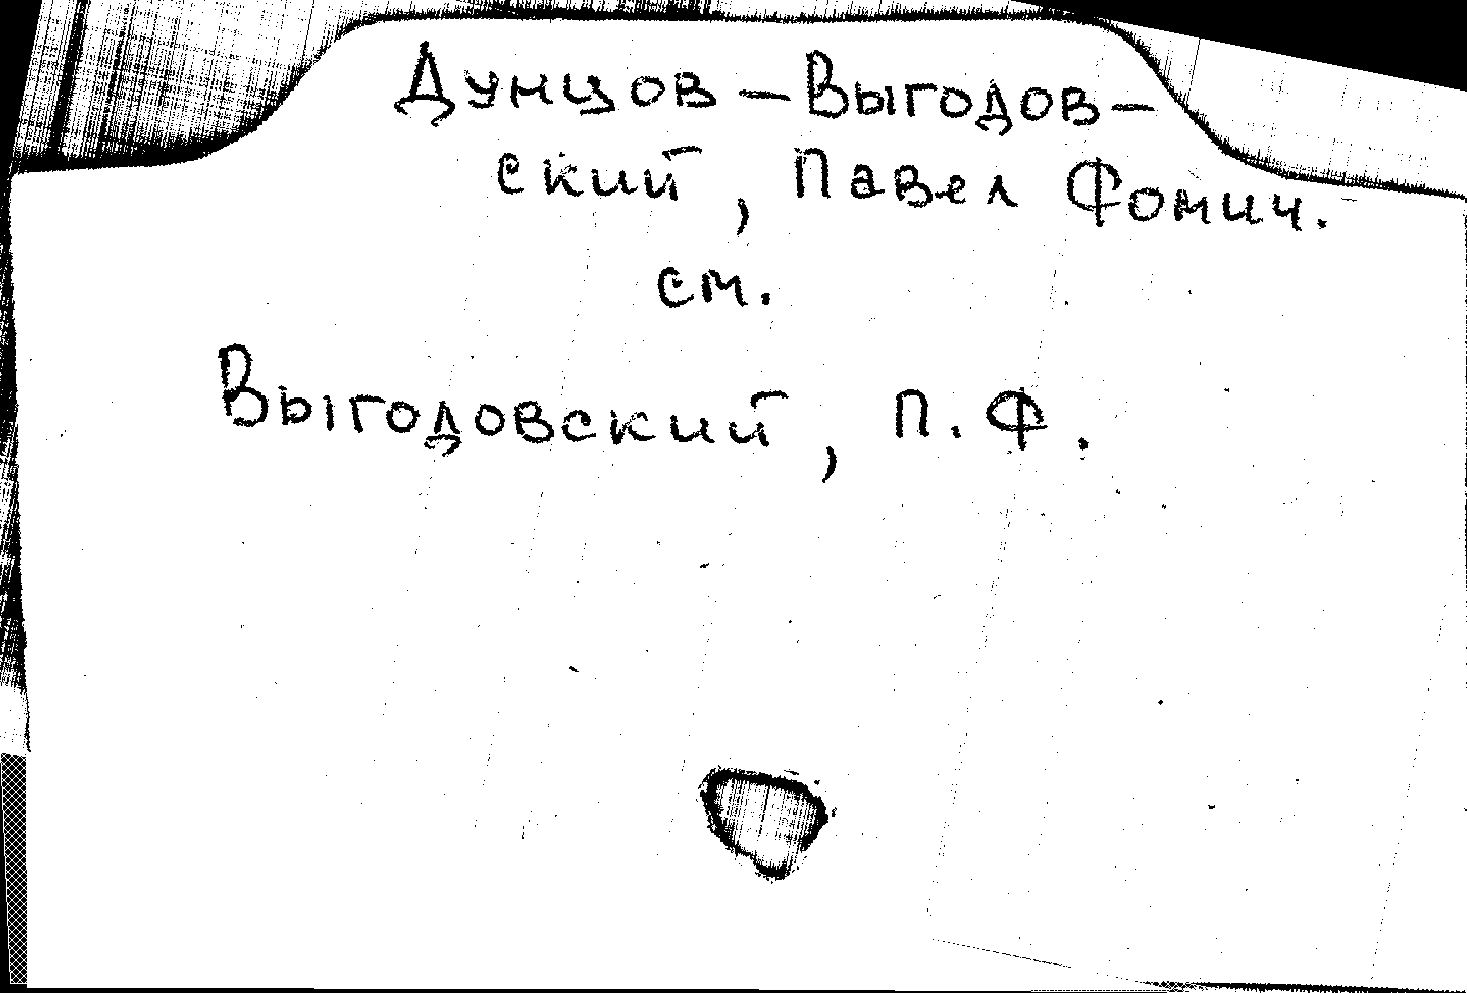 Дунцов - Выгодов-
ский, Павел Фомич.
см.
Выгодовский, П. Ф.